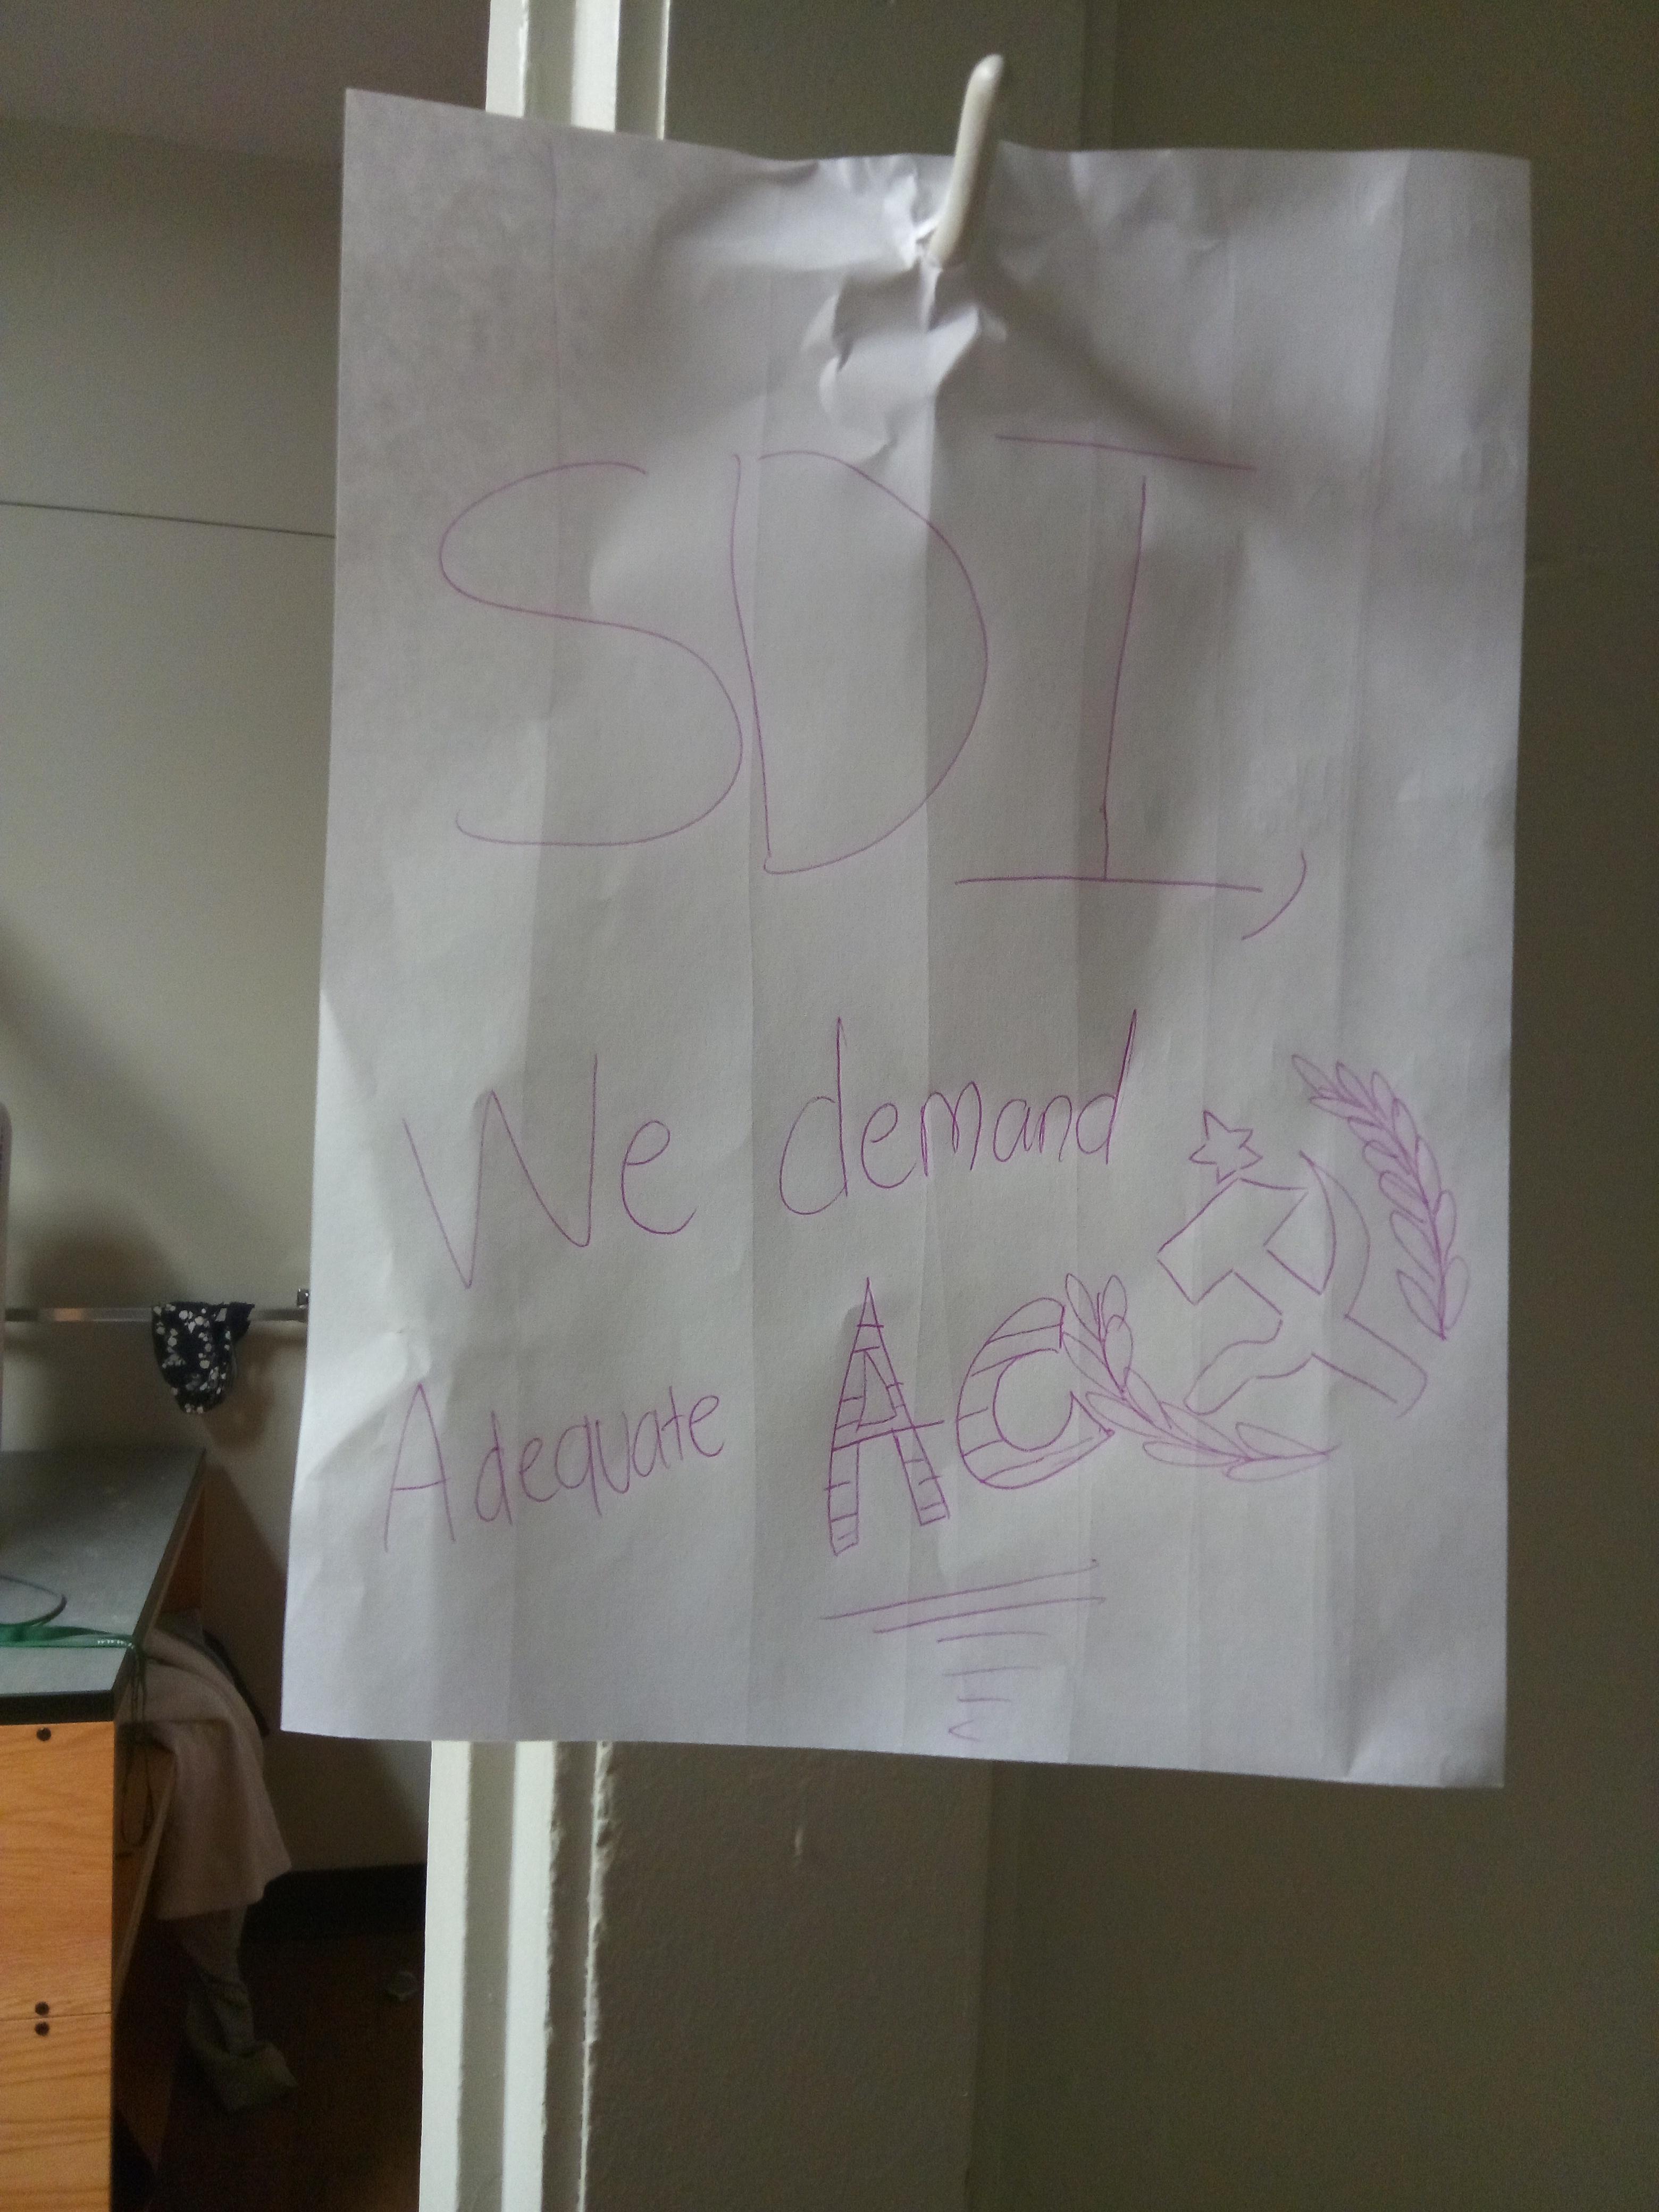 SDI,
We demand
Adequate AC